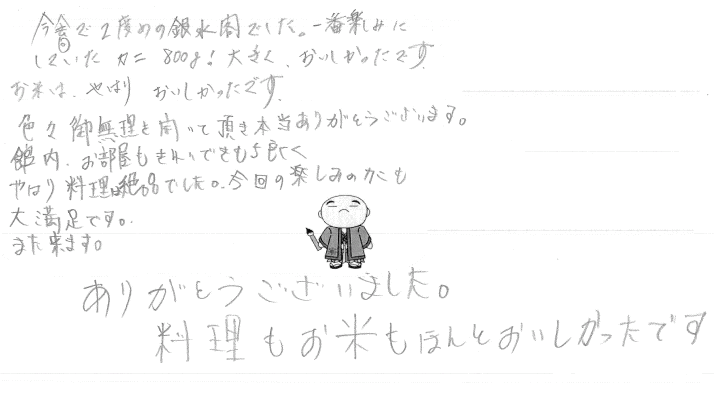 今回で2度めの銀水閣でした。一番楽しみに
していたカニ 800g!大きく、おいしかったです
お米は、やはり おいしかったです。
色々御無理を聞いて頂き本当ありがとうございます。
館内、お部屋もきれいで
やはり料理は絶品でした。今回の楽しみのカニも
大満足です。
また来ます。
ありがとうございました。
料理もお米もほんとおいしかったです